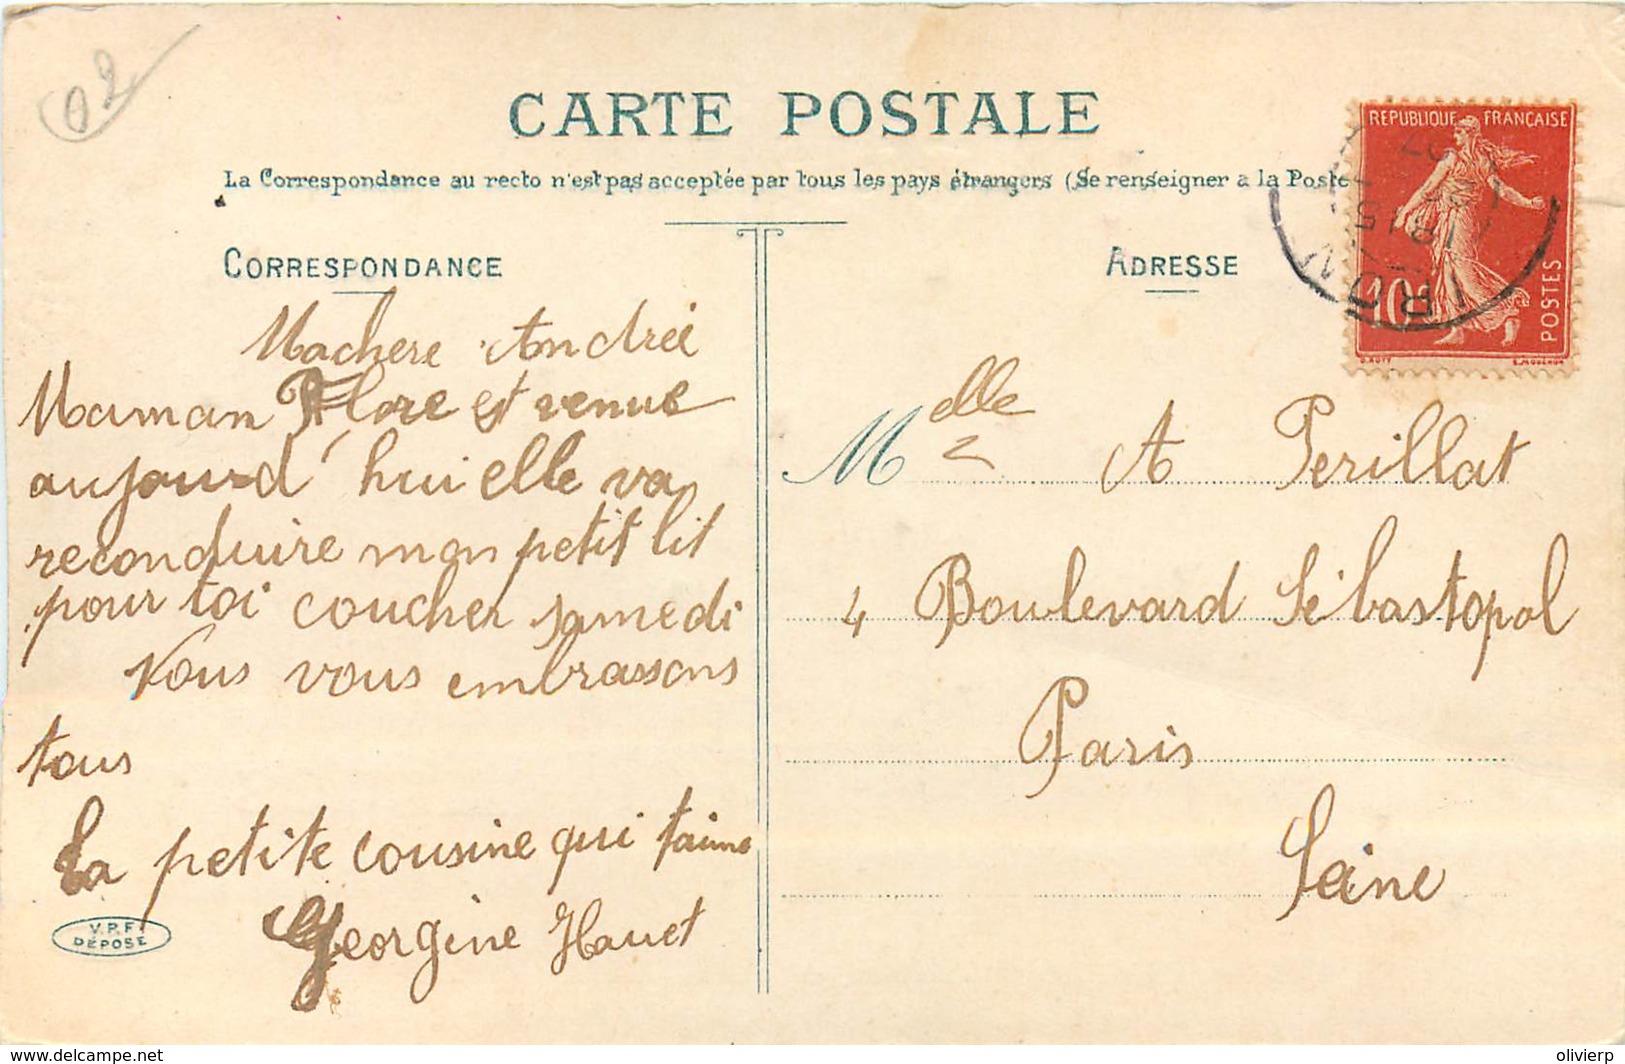 02
CARTE POSTALE
La Correspondance au recto n'est pas acceptée par tous les pays étrangers (Se renseigner a la Poste
CORRESPONDANCE
Machere Andrée
Maman Flore est venue
aujourd'hui elle va
reconduire mon petit lit
pour toi coucher samedi
Nous vous embrassons
tous
La petite cousine qui taime
Georgine Hauet
V.P.F.
DÉPOSÉ
ADRESSE
REPUBLIQUE FRANÇAISE
10c
POSTES
O. ROTY
Melle A Perillat
4 Boulevard Sébastopol
Paris
Seine
delcampe.net
olivierp